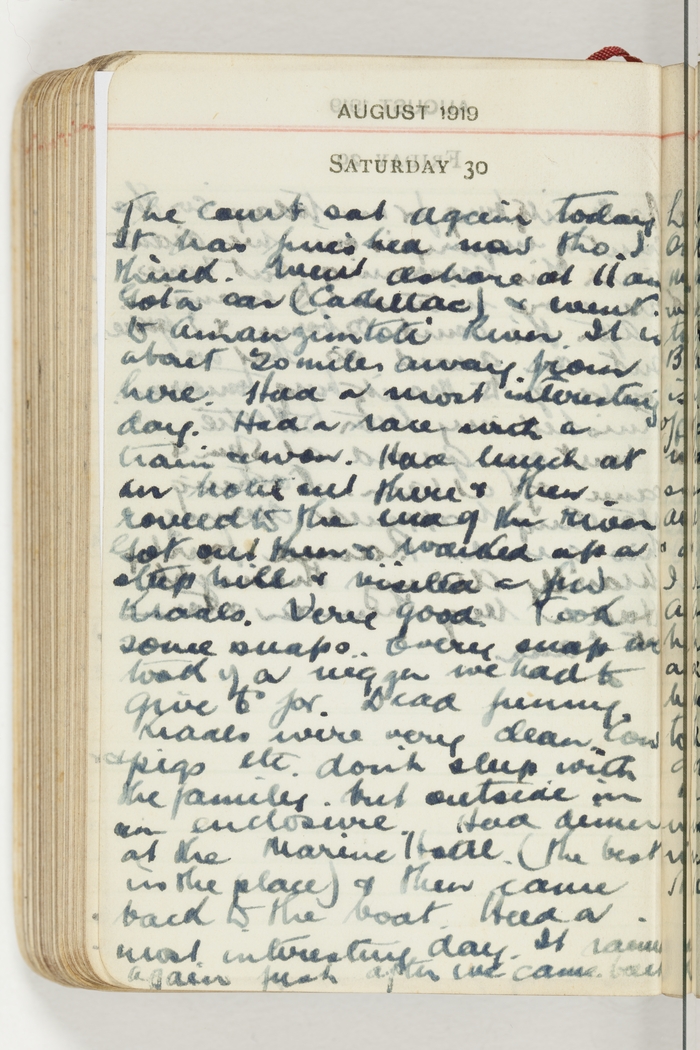 AUGUST 1919
SATURDAY 30
The court sat again today
It has finished now tho I
think. Went ashore at 11 am
Got a car (Cadillac) & went
to Amanzimtoti River. It is
about 20 miles away from
here. Had a most interesting
day. Had a race with a
train & won. Had lunch at
an hotel out there & then
rowed to the end of the river
Got out then & walked up a
steep hill & visited a few
Kraals. Very good. Took
some snaps. Every snap we
took of a nigger we had to
give 6 for. Dead funny.
Kraals were very clean. Cows
pigs etc. don't sleep with
the families. but outside in
an enclosure. Had dinner
at the Marine Hotel. (the best
in the place) & then came
back to the boat. Had a
most interesting day. It rained
again just after we came back